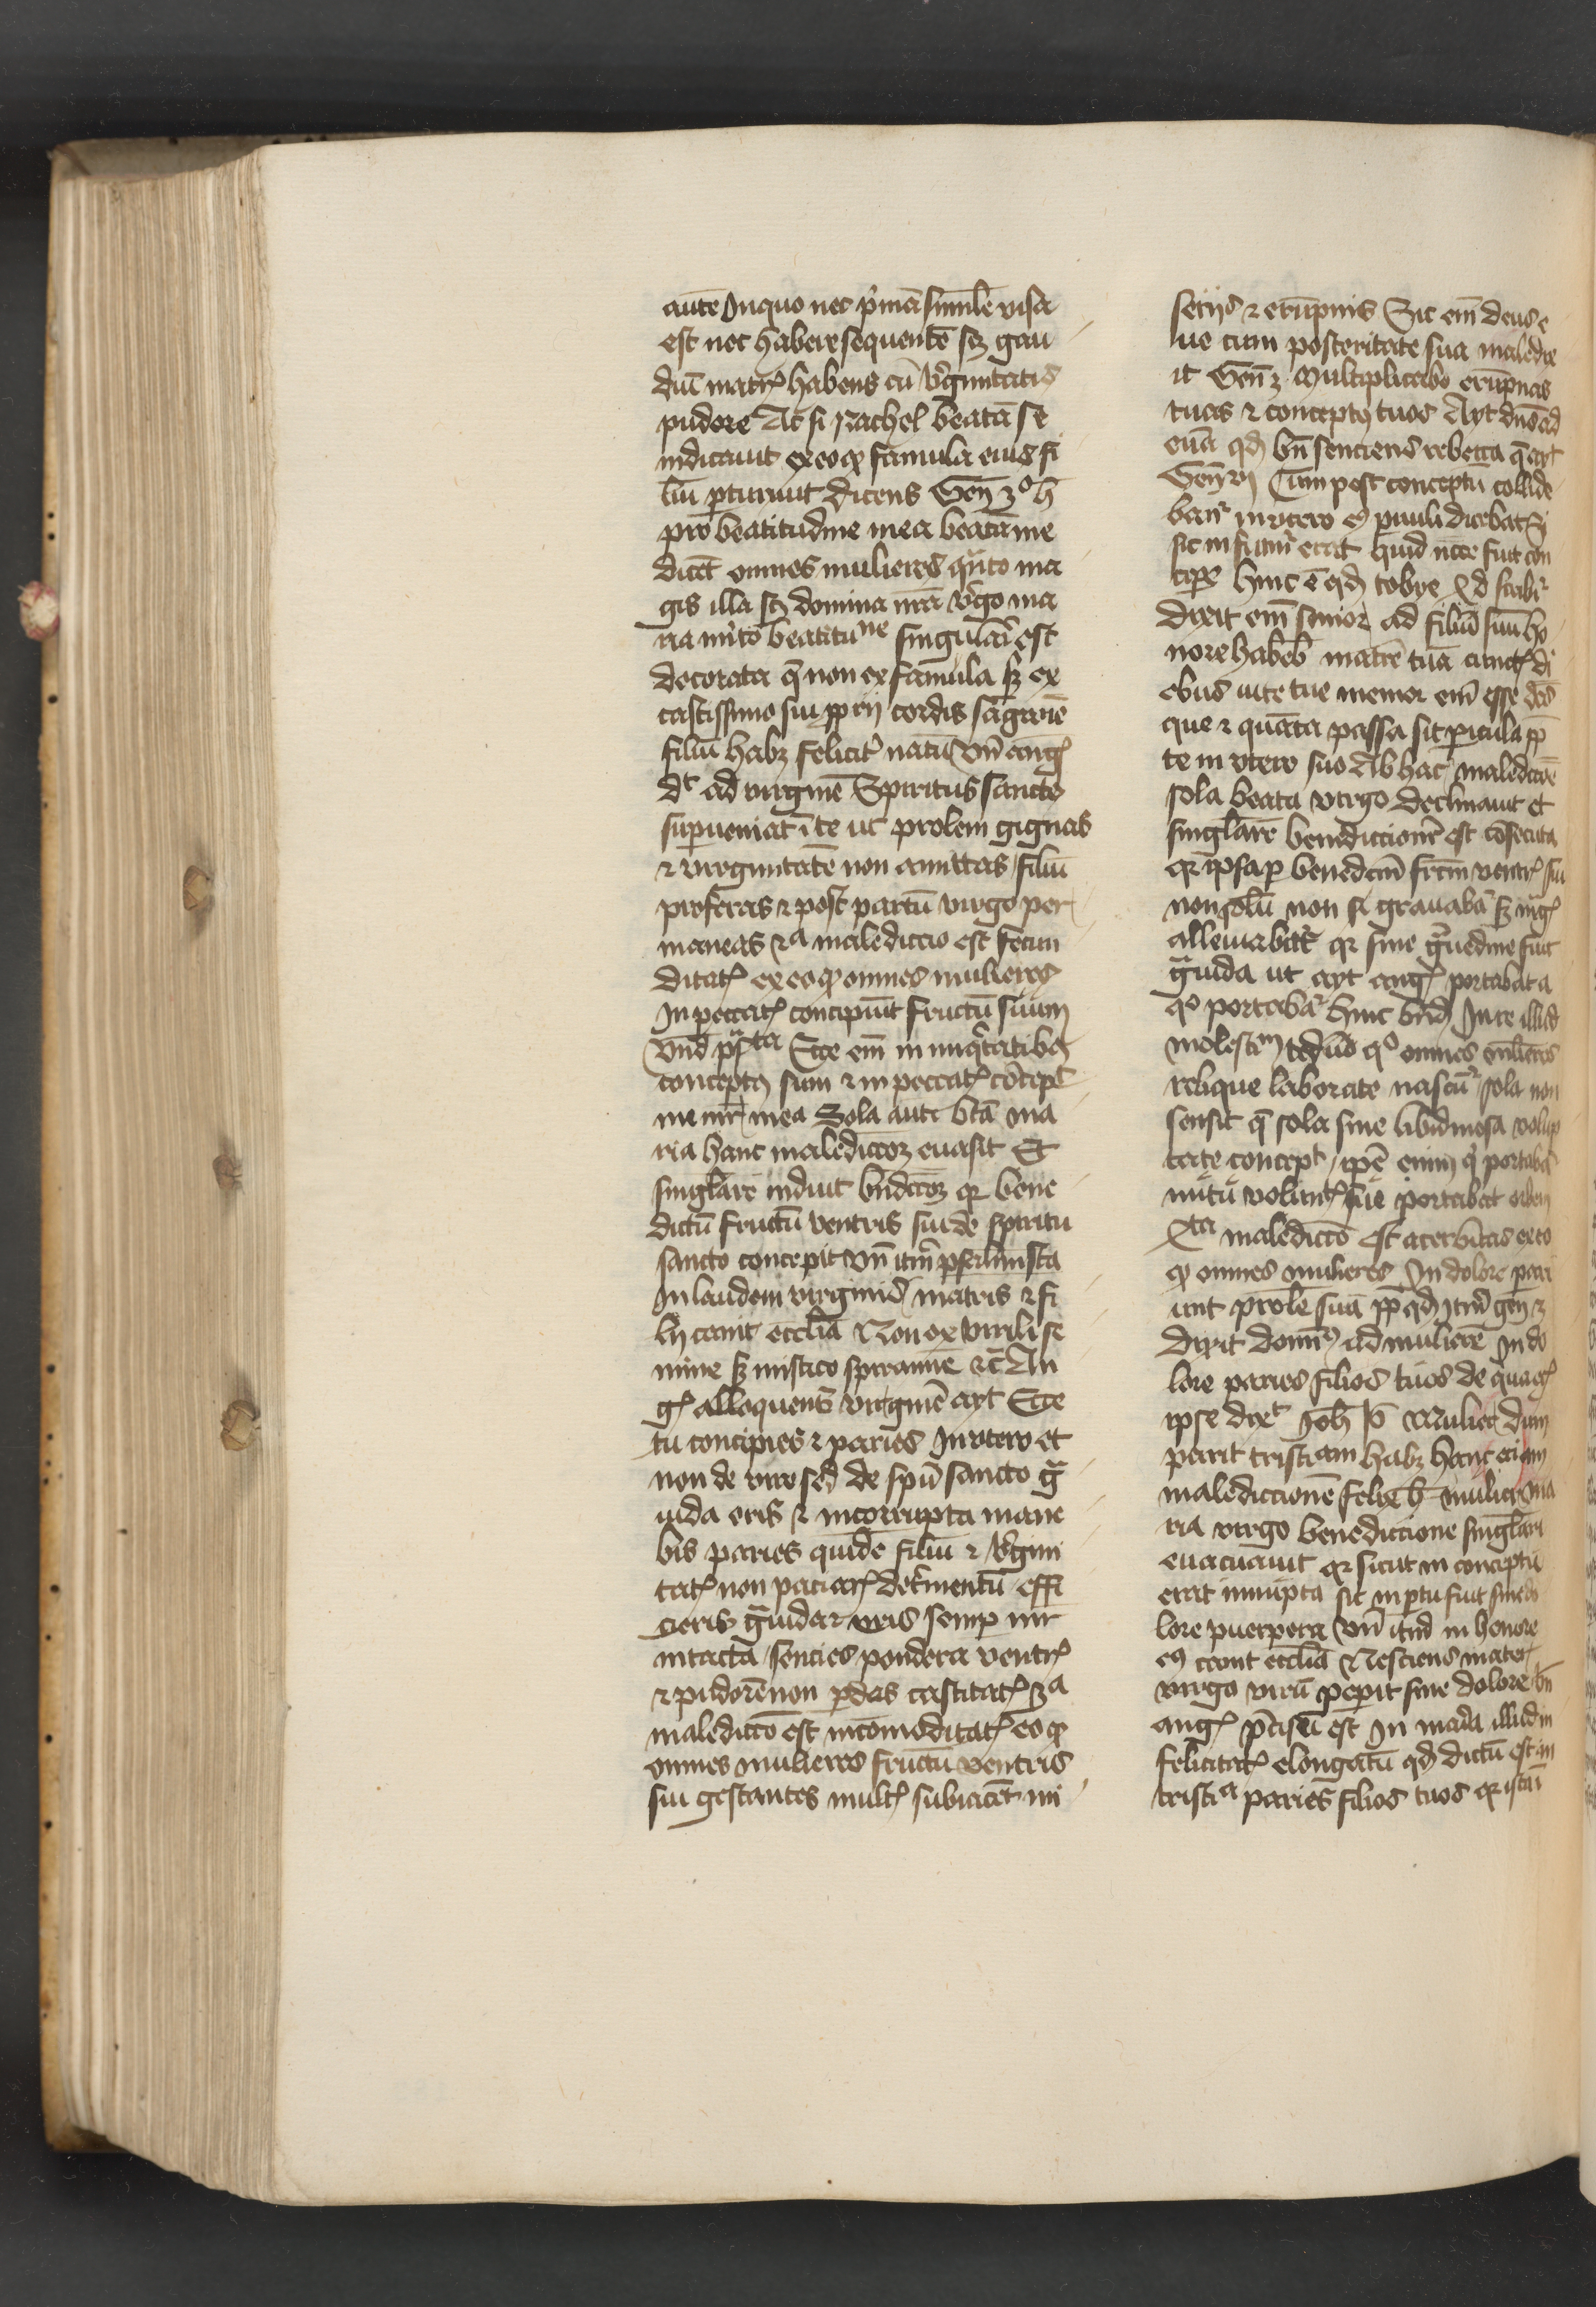 autē Inquo nec p̄mā similē visa
est nec habere sequentē sꝫ gau
diū matrꝭ habens cū v̓ginitatis
pudore Ac si Rachel beatā se
indicauit ex eo qꝫ famula eius fi
liū ꝑturiuit dicens Gen̄ 3º h̄
pro beatitudine mea beatā me
dicēt omnes mulieres q̄nto ma
gis illa sꝫ domina nr̄a v̓go ma
ria mito beatituᵈⁿᵉ singulari est
decorata q̄ non ex famula sꝫ ex
castissimo sui ꝓprij cordis sāgwīe
filiū habꝫ felicit̓ natū Vn̄ angꝭ
dt ad virginē Spiritus sanctꝰ
suꝑueniat ī te ut prolem gignas
⁊ virginitatē non amittas filiū
proferas ⁊ post partū virgo per
maneas 2ᵃ maledictio est fecun
ditatꝭ ex eo qꝫ omnes mulieres
In peccatꝭ concipiūt fructū suum
Vnd̄ ꝓphᵗᵃ Ecce em̄ in iniq̓tatibꝰ
conceptꝰ sum ⁊ in peccatꝭ cōcepᵗ
me mr̄ mea Sola autē bt̄a ma
ria hanc maledictōꝫ euasit Et
singlarē induit bn̄dictōꝫ qꝛ bene
dictū fructū ventris sui de spiritu
sancto concepit Vn̄ itm̄
In laudem virginis matris ⁊ fi
lij canit eccl̄ia Non ex virili se
mine sꝫ mistico spiramīe ⁊c̄ An
gꝭ alloquens virginē ayt Ecce
tu concipies ⁊ paries In vtero et
non de viro sed de spū sancto gͣ
uida eris ⁊ incorrupta mane
bis paries quidē filiū ⁊ v̓gini
tatꝭ non paciarꝭ det̓mentū effi
cieris gͣuida ⁊ eris semꝑ mr̄
intacta sencies pondera ventrꝭ
⁊ pudorē non ꝑdes castitatꝭ 3ᵃ
maledictō est incōmoditatꝭ eo qꝫ
omnes mulieres fructū ventris
sui gestantes multꝭ subiacēt mi
serijs ⁊ erūpnis Sic em̄ deus e
ue cum posteritate sua maledix
it Gen̄ 3 Multiplicabo erūpnas
tuas ⁊ conceptꝰ tuos Ayt dn̄s ad
euā qd̄ bn̄ senciens rebecca q̄ ayt
Gen̄ Cum post conceptū collide
banᵗ in vtero eꝰ puuli dicebat Si
sic m̄ futur̄ erat quid nc̄ce fuit con
ciꝑe hinc ē qd̄ tobye scribᵗ
dixit em̄ senior ad filiū suū ho
nore habeb̄ matrē tuā cunctꝭ di
ebus vite tue memor em̄ esse deb̄
que ⁊ quāta passa sit ꝑicula ꝓp
te in vtero suo Ab hac maledictōe
sola beata virgo declinauit et
singlarē benedictionē est cōsecuta
qꝛ ipsa ꝑ benedcm̄ frctm̄ ventrꝭ sui
non solū non fᵗ grauabaᵗ sꝫ mgꝭ
alleuiabat̓ qꝛ sine gͣuedine fuit
gͣuida ut ayt angꝭ portabat a
qº portabaᵗ hinc bn̄d Inre illud
molestᵐ tediū qº omnes mlieres
relique laborāte nascūᵗ sola non
sensit q̄ sola sine libidinosa volup
tate concepᵗ ipē enim q̓ portabaᵗ
nutū voluntꝭ sue portabat orbem
Xta maledictō est acerbitas ex eo
qꝫ omnes mulieres In dolore pari
unt prolē suā ꝓp qd̄ itm̄ gen̄ 3
dixit domꝰ ad mulierē In do
lore paries filios tuos de qua
ipse dixᵗ Joh̄ Mulier dum
parit tristiam habꝫ hanc eciam
maledictionē felix h̄ mulier ma
ria virgo benedictione singlari
euacuauit qꝛ sicut in conceptu
erat innupta sic in ꝑtu fuit sine do
lore puerpera Vn̄ itm̄ in honore
eꝰ canit eccl̄ia Nesciens mater
virgo virū peperit sine dolore Vn̄
angꝭ est In maria illud in
felicitatꝭ elongatū qd̄ dictū est in
tristiᵃ paries filios tuos qꝛ istā